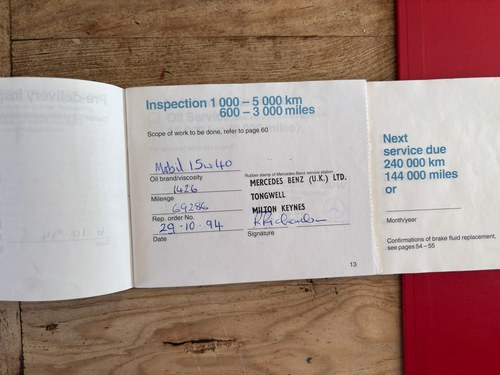 Inspection 1 000 – 5 000 km
600 – 3 000 miles
Scope of work to be done, refer to page 60
Mobil 15w40
Oil brand/viscosity
1426
Mileage
69286
Rep. order No.
29-10-94
Date
Rubber stamp of Mercedes-Benz service station
MERCEDES BENZ (U.K.) LTD.
TONGWELL
MILTON KEYNES
Signature
13
Next
service due
240 000 km
144 000 miles
or
Month/year
Confirmations of brake fluid replacement,
see pages 54 – 55